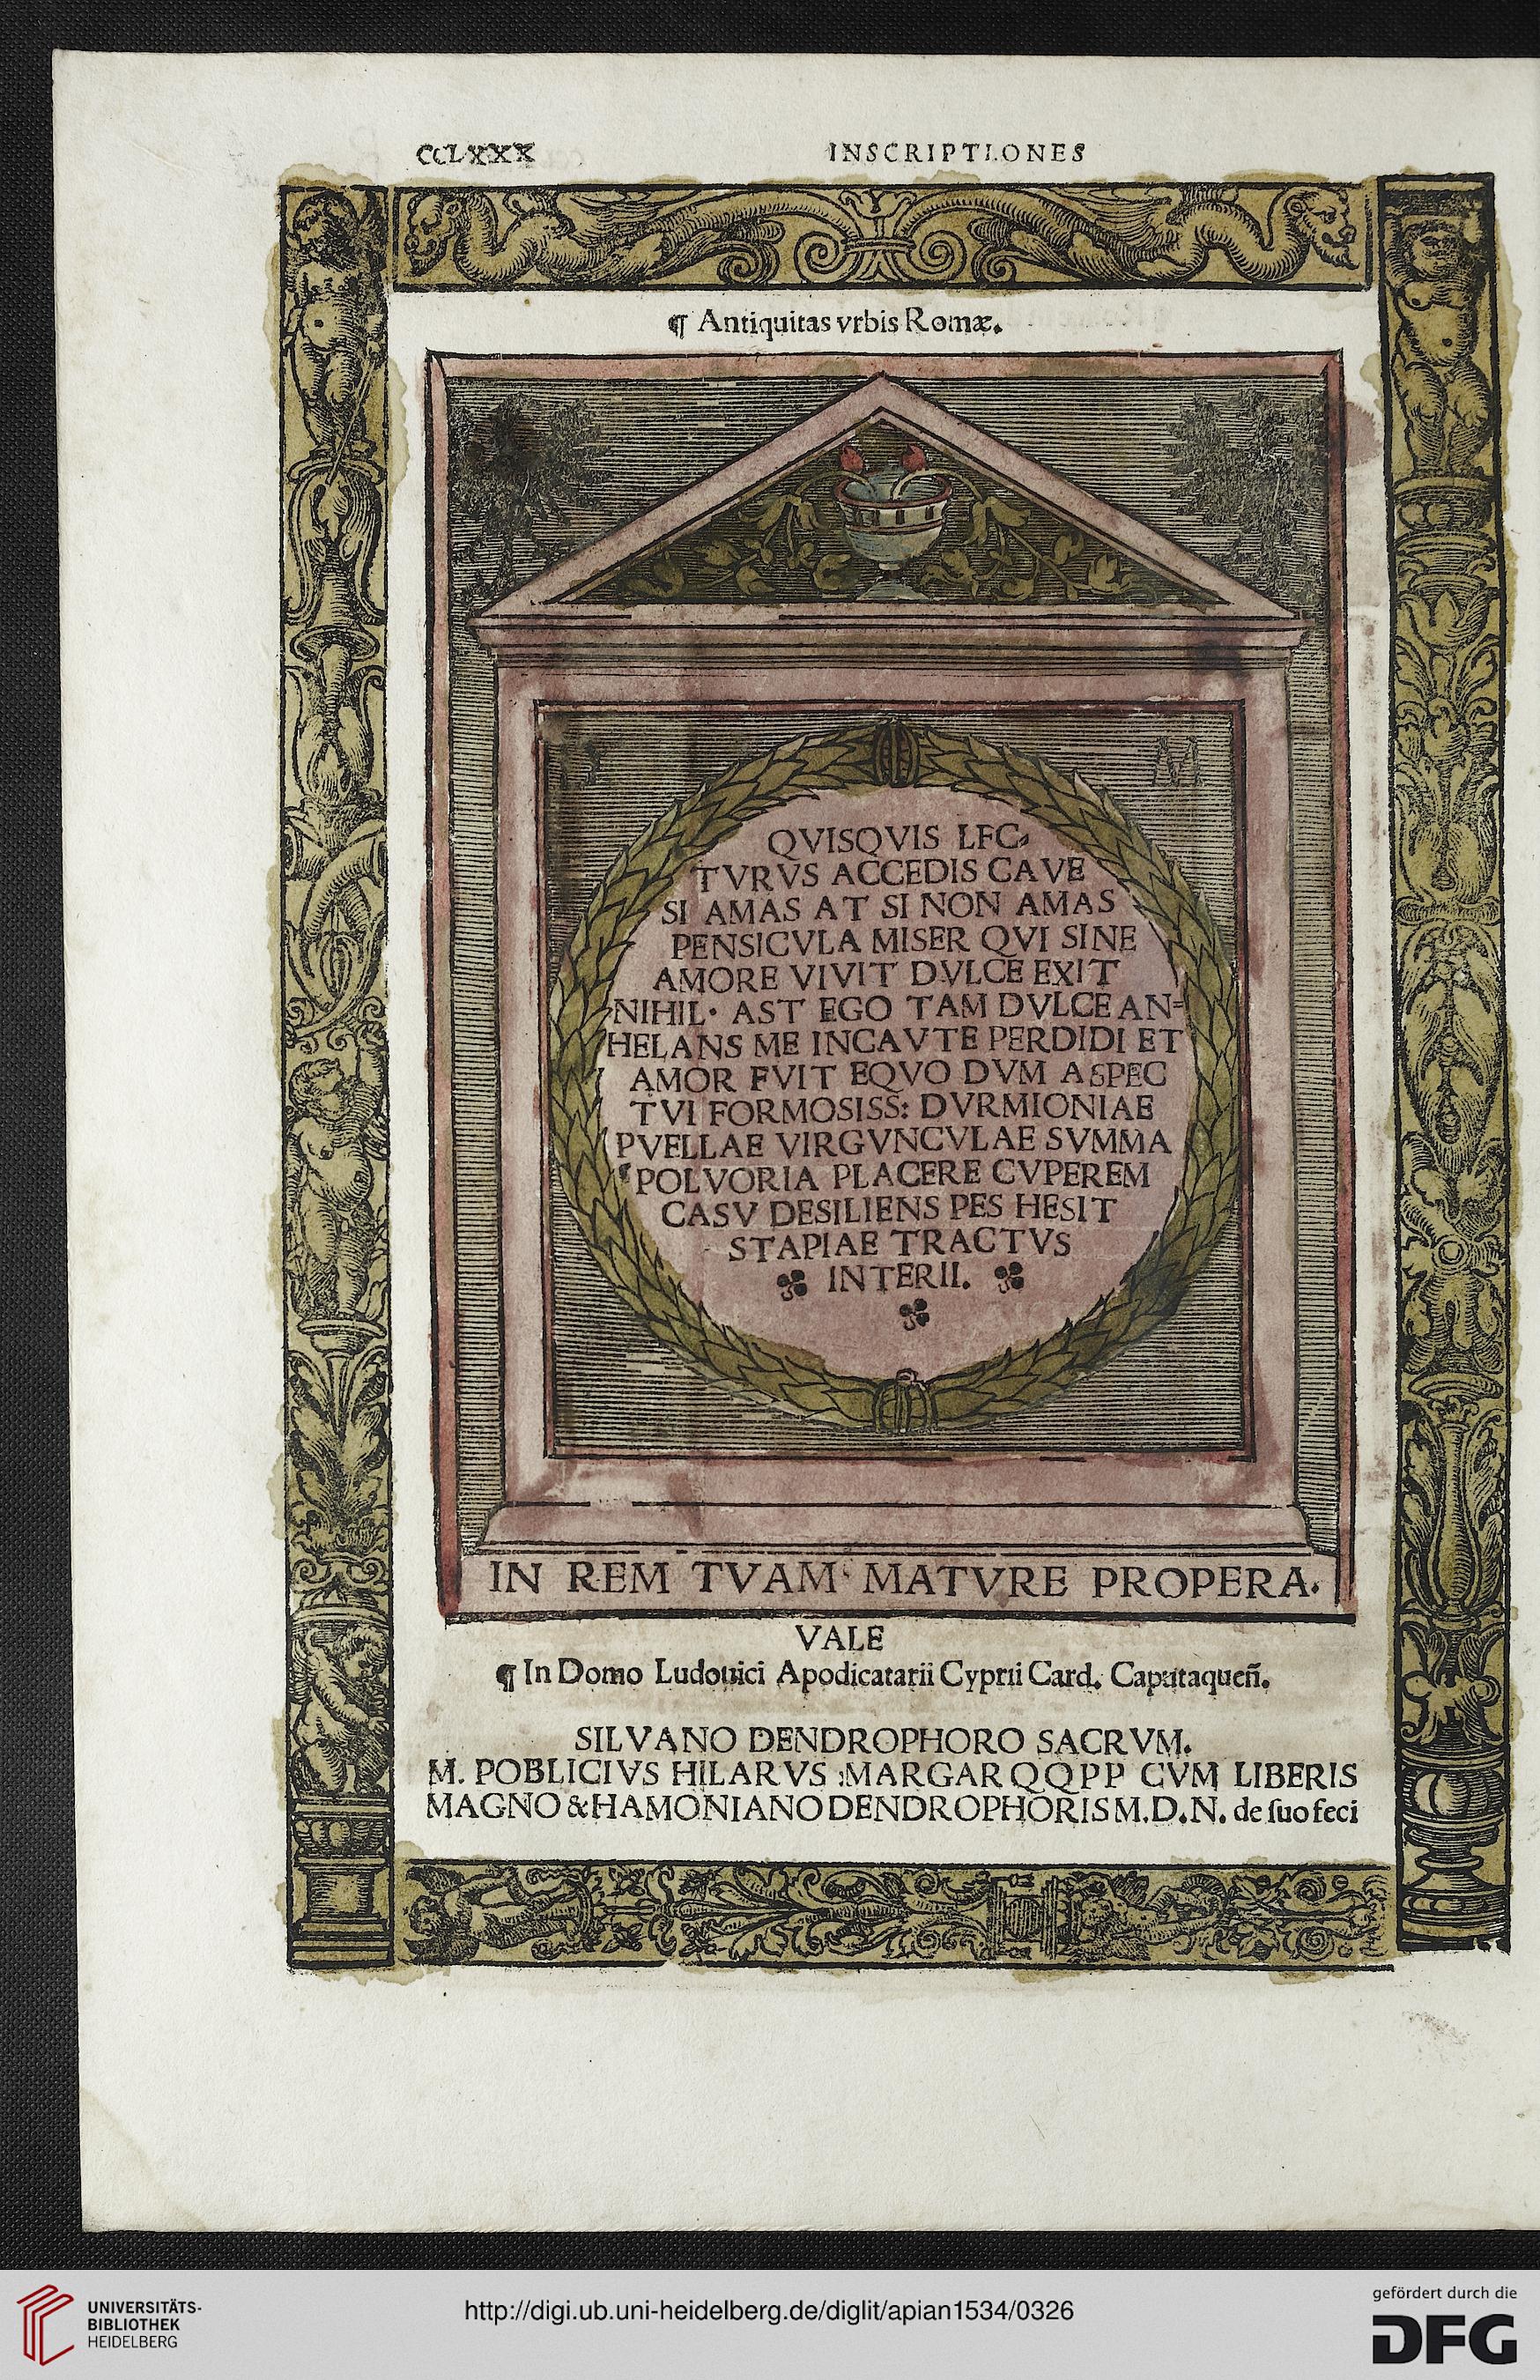 CCLXXX INSCRIPTIONES
¶ Antiquitas vrbis Romæ.
D M
QVISQVIS LEC-
TVRVS ACCEDIS CAVE
SI AMAS AT SI NON AMAS
PENSICVLA MISER QVI SINE
AMORE VIVIT DVLCE EXIT
NIHIL· AST EGO TAM DVLCE AN=
HELANS ME INCAVTE PERDIDI ET
AMOR FVIT EQVO DVM ASPEC
TVI FORMOSISS: DVRMIONIAE
PVELLAE VIRGVNCVLAE SVMMA
POLVORIA PLACERE CVPEREM
CASV DESILIENS PES HESIT
STAPIAE TRACTVS
INTERII.
IN REM TVAM MATVRE PROPERA.
VALE
¶ In Domo Ludouici Apodicatarii Cyprii Card. Caputaqueñ.
SILVANO DENDROPHORO SACRVM.
M. POBLICIVS HILARVS :MARGAR QQPP CVM LIBERIS
MAGNO & HAMONIANO DENDROPHORIS M.D.N. de ſuo feci
UNIVERSITÄTS-
BIBLIOTHEK
HEIDELBERG
http://digi.ub.uni-heidelberg.de/diglit/apian1534/0326
gefördert durch die
DFG